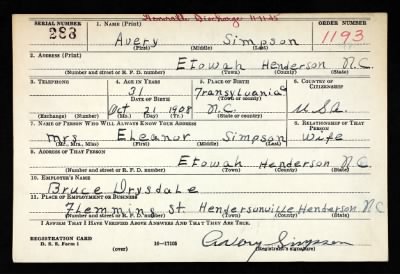 Honorable Discharge 11-11-45
SERIAL NUMBER 1. NAME (Print) ORDER NUMBER
283 Avery Simpson 1193
(First) (Middle) (Last)
2. ADDRESS (Print)
Etowah Henderson N.C.
(Number and street or R. F. D. number) (Town) (County) (State)
3. TELEPHONE 4. AGE IN YEARS 5. PLACE OF BIRTH 6. COUNTRY OF CITIZENSHIP
31 Transylvania
DATE OF BIRTH (Town or county)
Oct 21 1908 N.C. USA
(Exchange) (Number) (Mo.) (Day) (Yr.) (State or country)
7. NAME OF PERSON WHO WILL ALWAYS KNOW YOUR ADDRESS 8. RELATIONSHIP OF THAT PERSON
Mrs Eleanor Simpson Wife
(Mr., Mrs., Miss) (First) (Middle) (Last)
9. ADDRESS OF THAT PERSON
Etowah Henderson N.C.
(Number and street or R. F. D. number) (Town) (County) (State)
10. EMPLOYER'S NAME
Bruce Drysdale
11. PLACE OF EMPLOYMENT OR BUSINESS
Flemming St. Hendersonville Henderson NC
(Number and street or R. F. D. number) (Town) (County) (State)
I AFFIRM THAT I HAVE VERIFIED ABOVE ANSWERS AND THAT THEY ARE TRUE.
REGISTRATION CARD
D. S. S. Form 1 (over) 16-17105 Avory Simpson
(Registrant's signature)